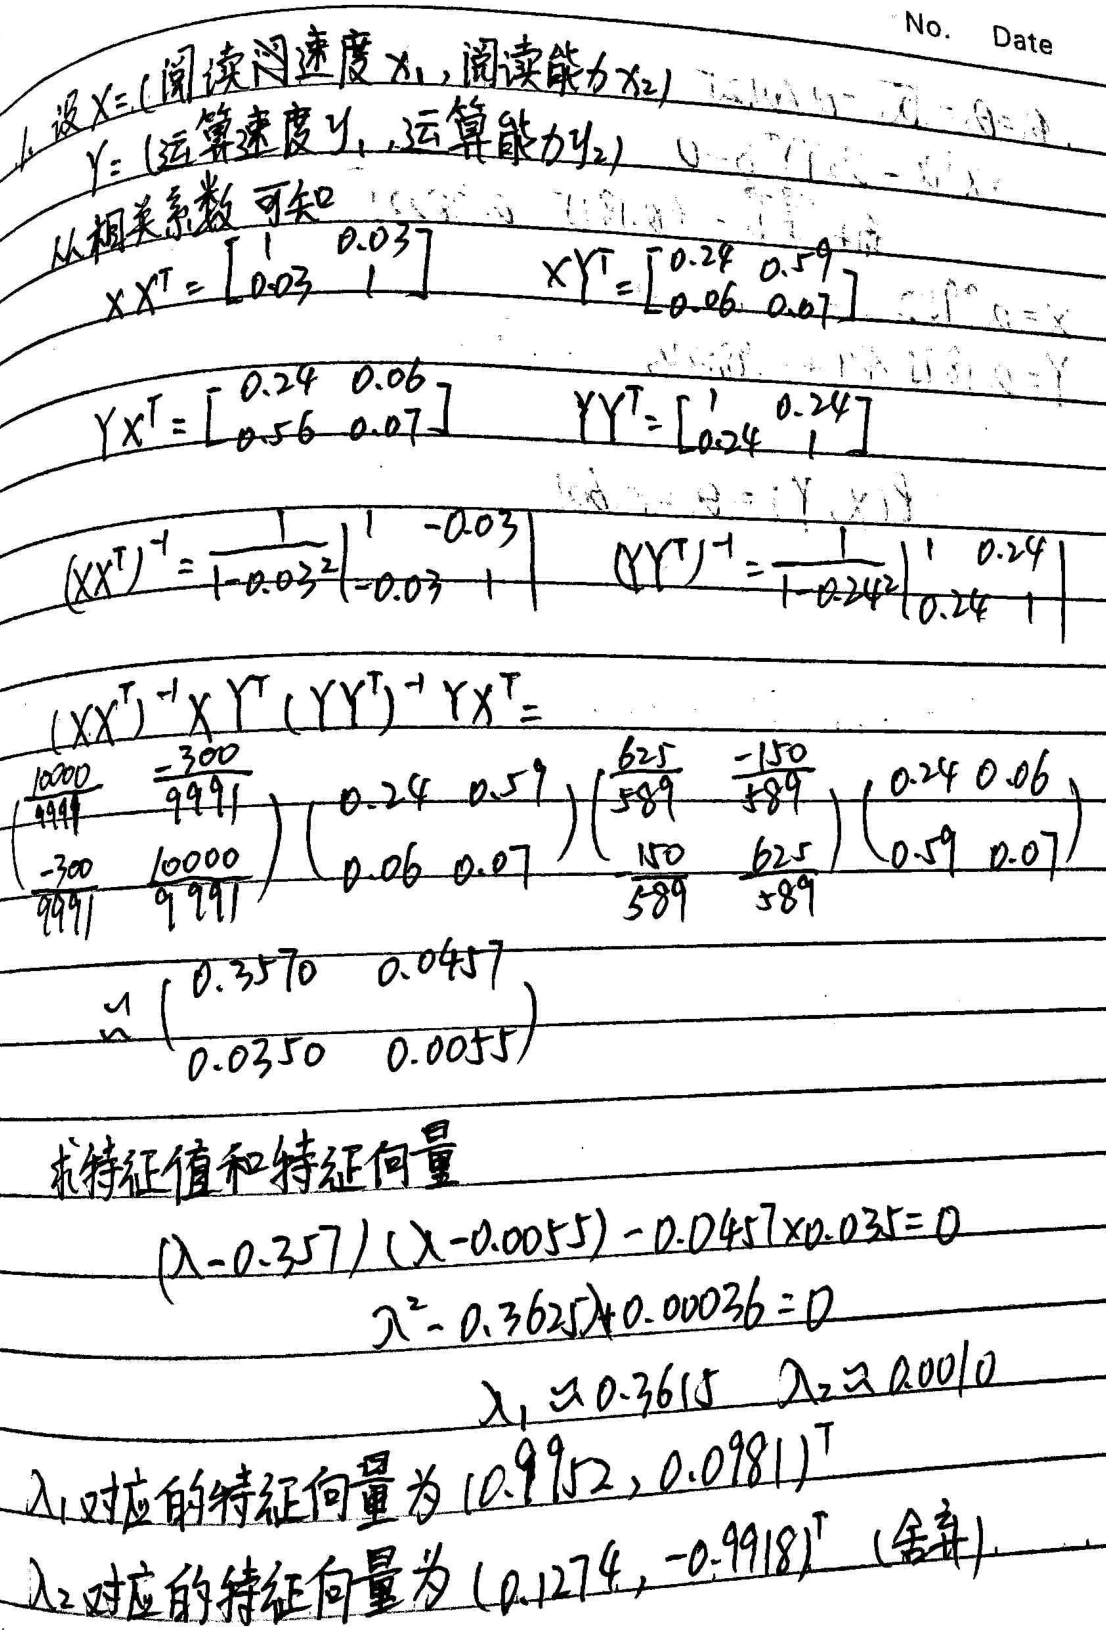 No. Date
1. 设X=(阅读速度x₁,阅读能力x₂)
Y=(运算速度y₁,运算能力y₂)
从相关系数可知
XXᵀ = [1 0.03; 0.03 1] XYᵀ = [0.24 0.59; 0.06 0.07]
YXᵀ = [0.24 0.06; 0.56 0.07] YYᵀ = [1 0.24; 0.24 1]
(XXᵀ)⁻¹ = 1/(1-0.03²) |1 -0.03; -0.03 1| (YYᵀ)⁻¹ = 1/(1-0.24²) |1 0.24; 0.24 1|
(XXᵀ)⁻¹XYᵀ(YYᵀ)⁻¹YXᵀ=
(10000/9991 -300/9991; -300/9991 10000/9991) (0.24 0.59; 0.06 0.07) (625/589 -150/589; -150/589 625/589) (0.24 0.06; 0.59 0.07)
≈ (0.3570 0.0457; 0.0350 0.0055)
求特征值和特征向量
(λ-0.357)(λ-0.0055)-0.0457×0.035=0
λ²-0.3625λ+0.00036=0
λ₁≈0.3615 λ₂≈0.0010
λ₁对应的特征向量为(0.9952,0.0981)ᵀ
λ₂对应的特征向量为(0.1274,-0.9918)ᵀ (舍弃).